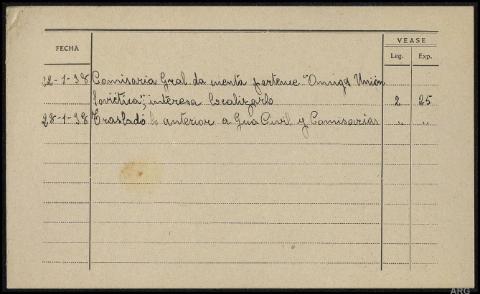 VEASE
FECHA Leg. Exp.
22-1-38 Comisaria Gral. da cuenta pertenece "Amigos Unión
Soviética", interesa localizarlo 2 25
28-1-38 Trasladó lo anterior a Gua Civil y Comisarias " "
ARG